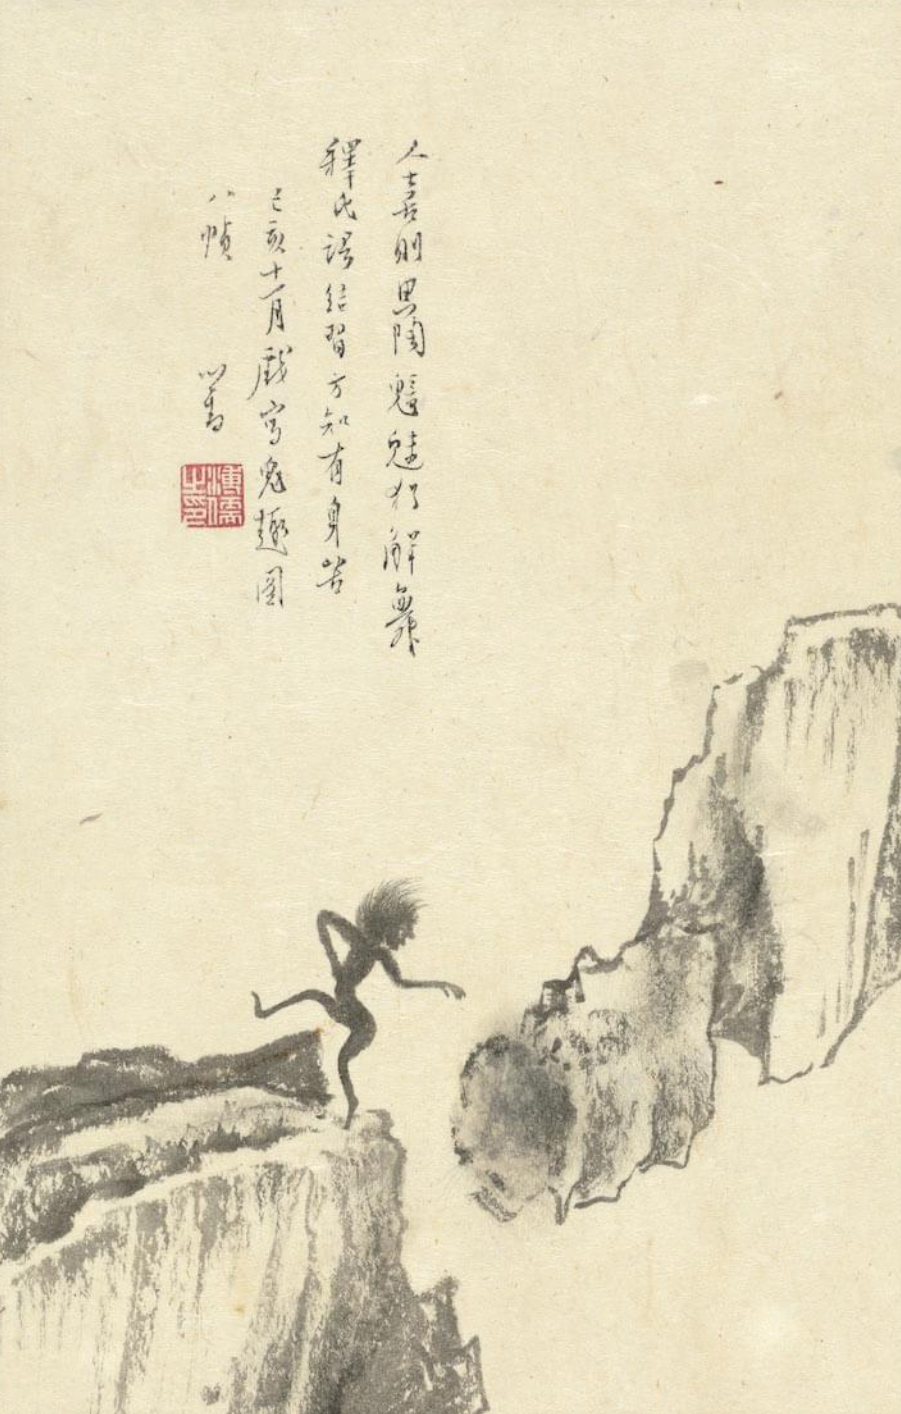 人喜則思陶魑魅猶解舞
釋氏結習方知有身苦
己亥十一月戲寫鬼趣圖
八幀 心畬
溥儒之印